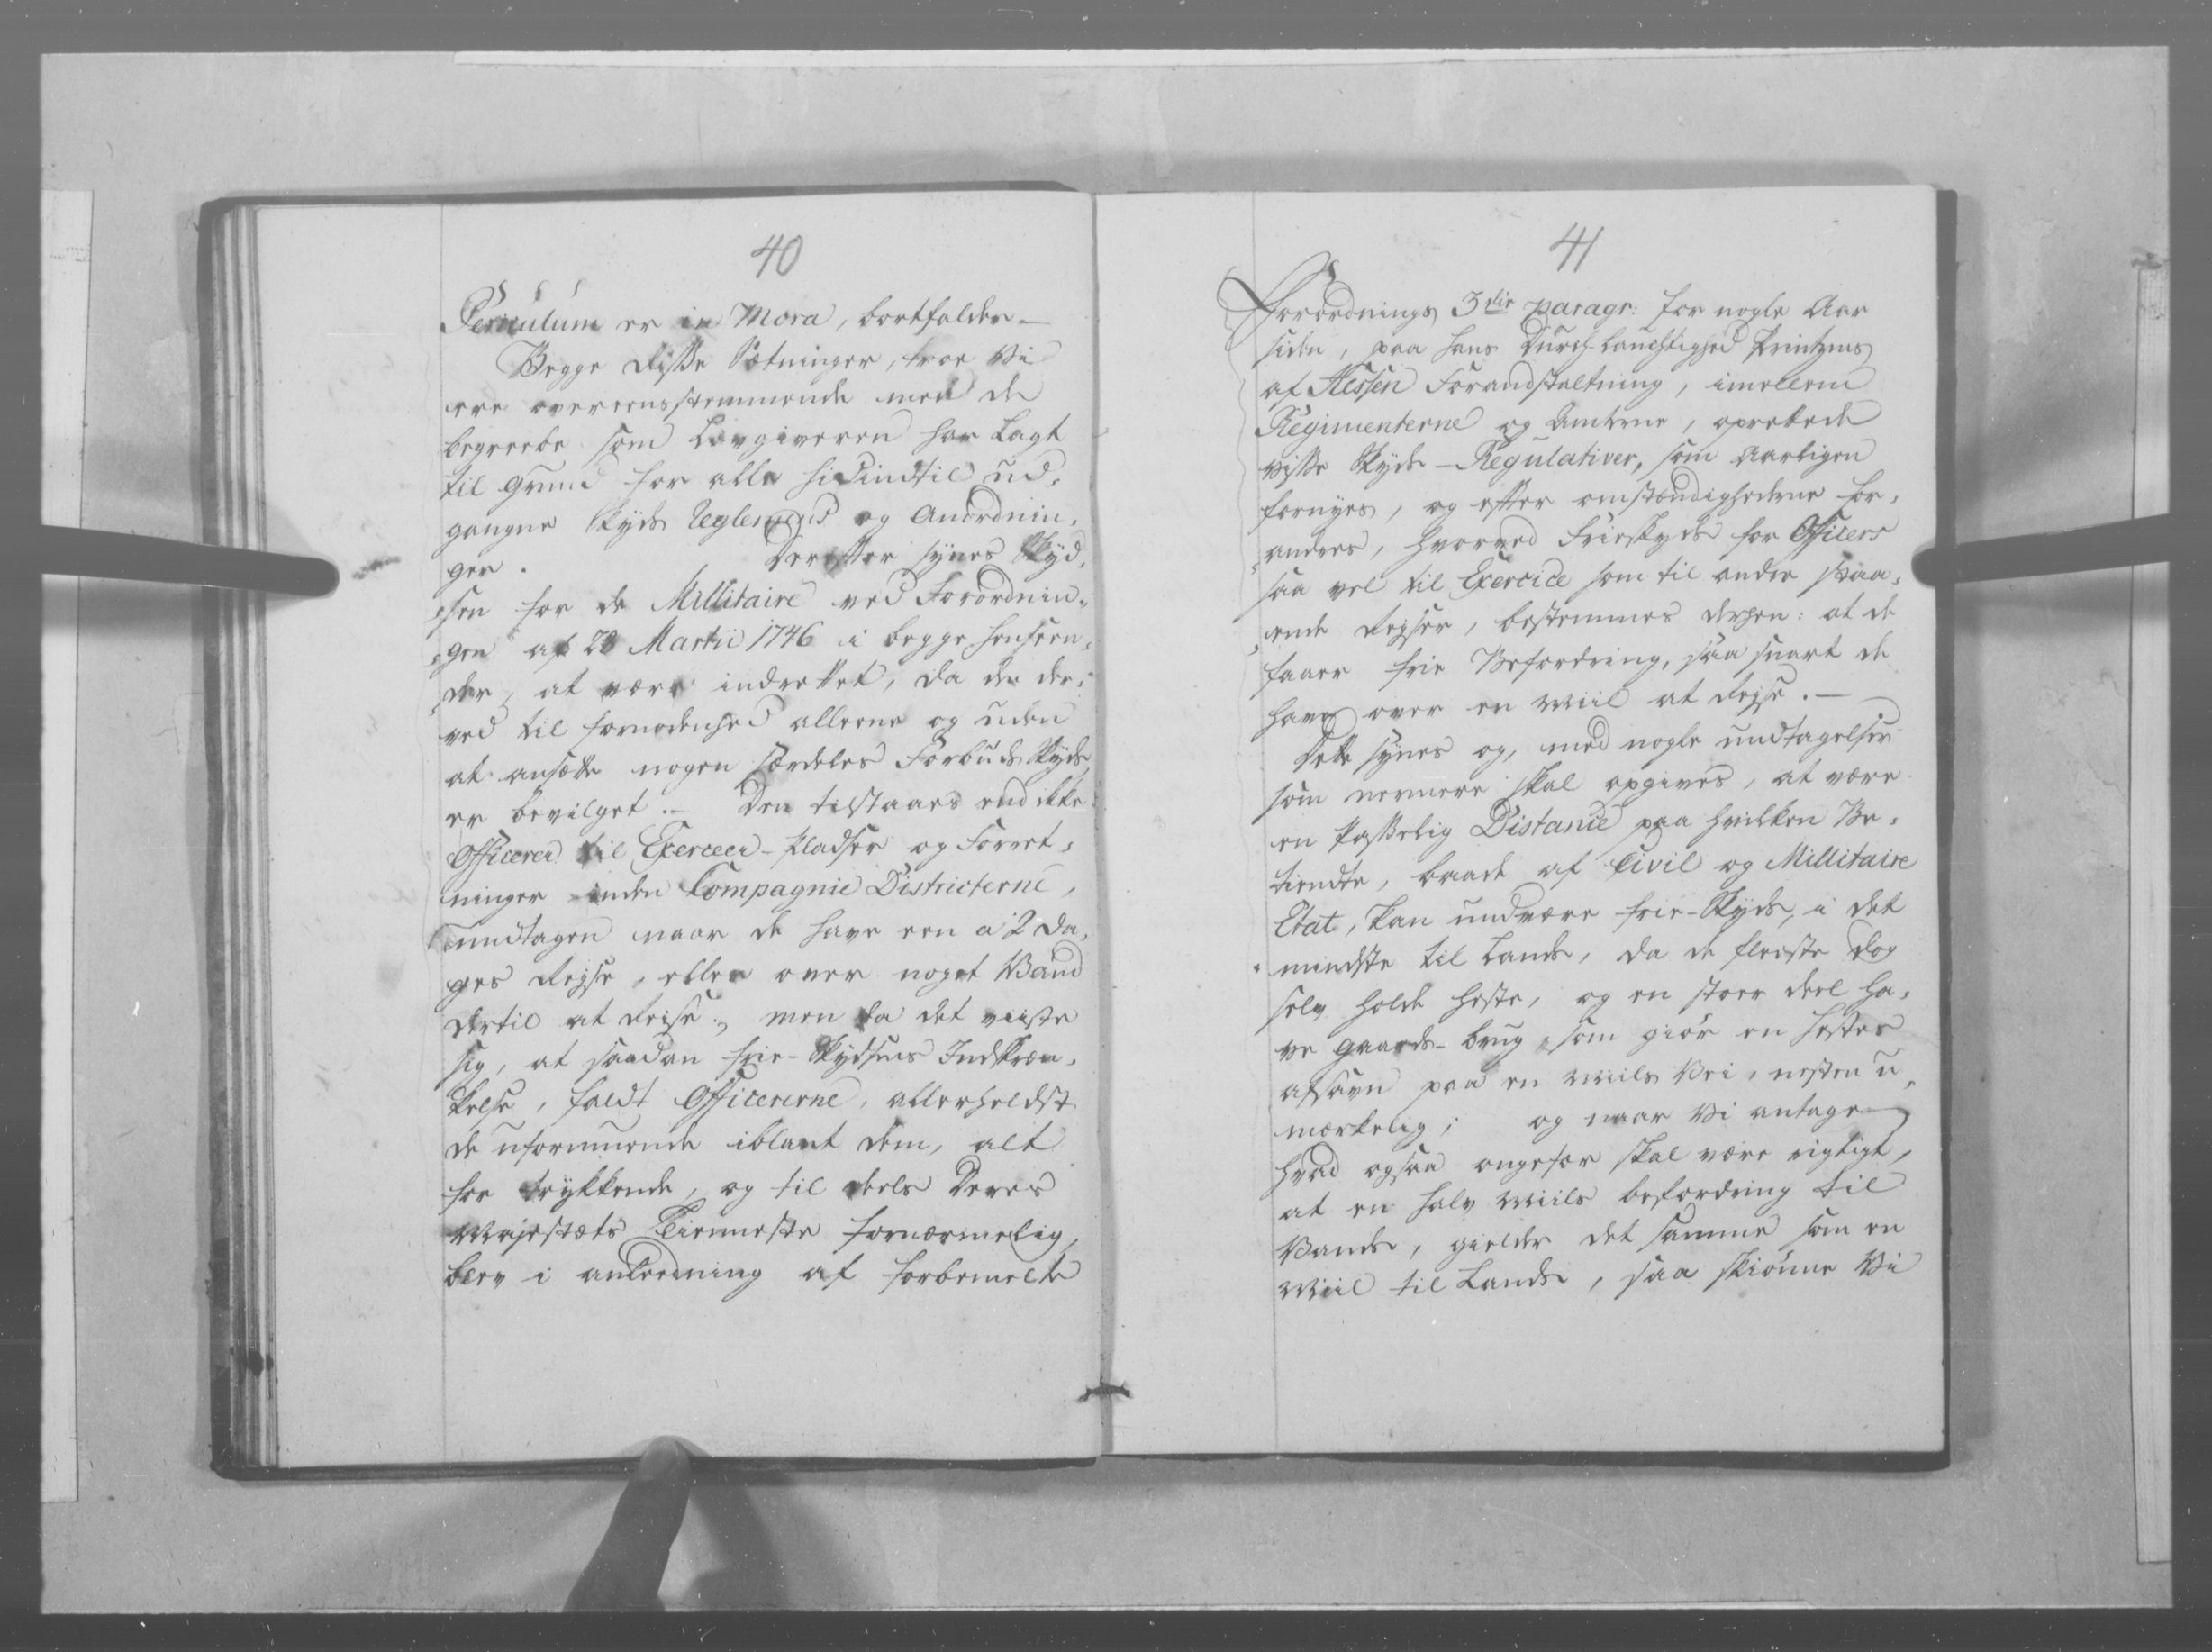 40
Periculum er in Mora, bortfalder –
Begge disse Sætninger, troe Vi
ere overeensstemmende med de
begreebe som Lovgiveren har lagt
til grund for alle hidindtil ud-
gangne Skyds Reglements og Anordnin-
ger. Derefter synes Skyd-
sen for de Millitaire ved Forordnin-
gen af 28 Martii 1746 i begge henseen-
der, at være indrettet, da den der-
ved til fornødenhed alleene og uden
at ansætte nogen særdeles Forbuds Skyds
er bevilget. – Den tilstaaes end ikke
Officerer til Exerceer-Pladser og Forret-
ninger inden Compagnie Districterne,
undtagen naar de have een a 2 Da-
ges Rejse, eller over noget Vand
dertil at Reise; men da det viiste
sig, at saadan frie-Skydsens Indskræn-
kelse, faldt Officererne, allerheldst
de uformuende iblant dem, alt
for trykkende, og til deels Deres
Majestæts Tienneste fornærmelig,
blev i anledning af forbemelte
41
Forordnings 3die paragr: for nogle Aar
siden, paa Hans Durchlauchtighed Printzens
af Hessen Foranstaltning, imellem
Regimenterne og Amterne, oprettede
visse Skyds-Regulativer, som Aarligen
fornyes, og efter omstændighederne for-
andres, hvorved Frieskyds for Officers
saa vel til Exercice som til andre saa-
ende Rejser, bestemmes derhen: at de
faaer frie Befordring, saa snart de
have over en Miil at Rejse. –
Dette synes og, med nogle undtagelser
som nermere skal opgives, at være
en Passelig Distance paa hvilken Be-
tiendte, baade af Civil og Millitaire
Etat, kan undvære frie-Skyds, i det
mindste til Lands, da de fleeste dog
selv holde Heste, og en stoer deel ha-
ve gaards-brug som giør en Hestes
afsavn paa en Miils Vei, nesten u-
mærkelig; og naar Vi antage
hvad ogsaa ongefær skal være rigtigt,
at en halv Miils befordring til
Vands, gielder det samme som en
Miil til Lands, saa skiønne Vi